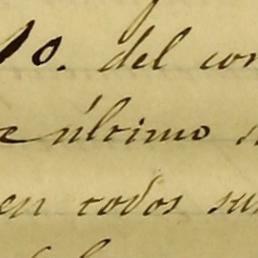 10. del con
último s
en todos su